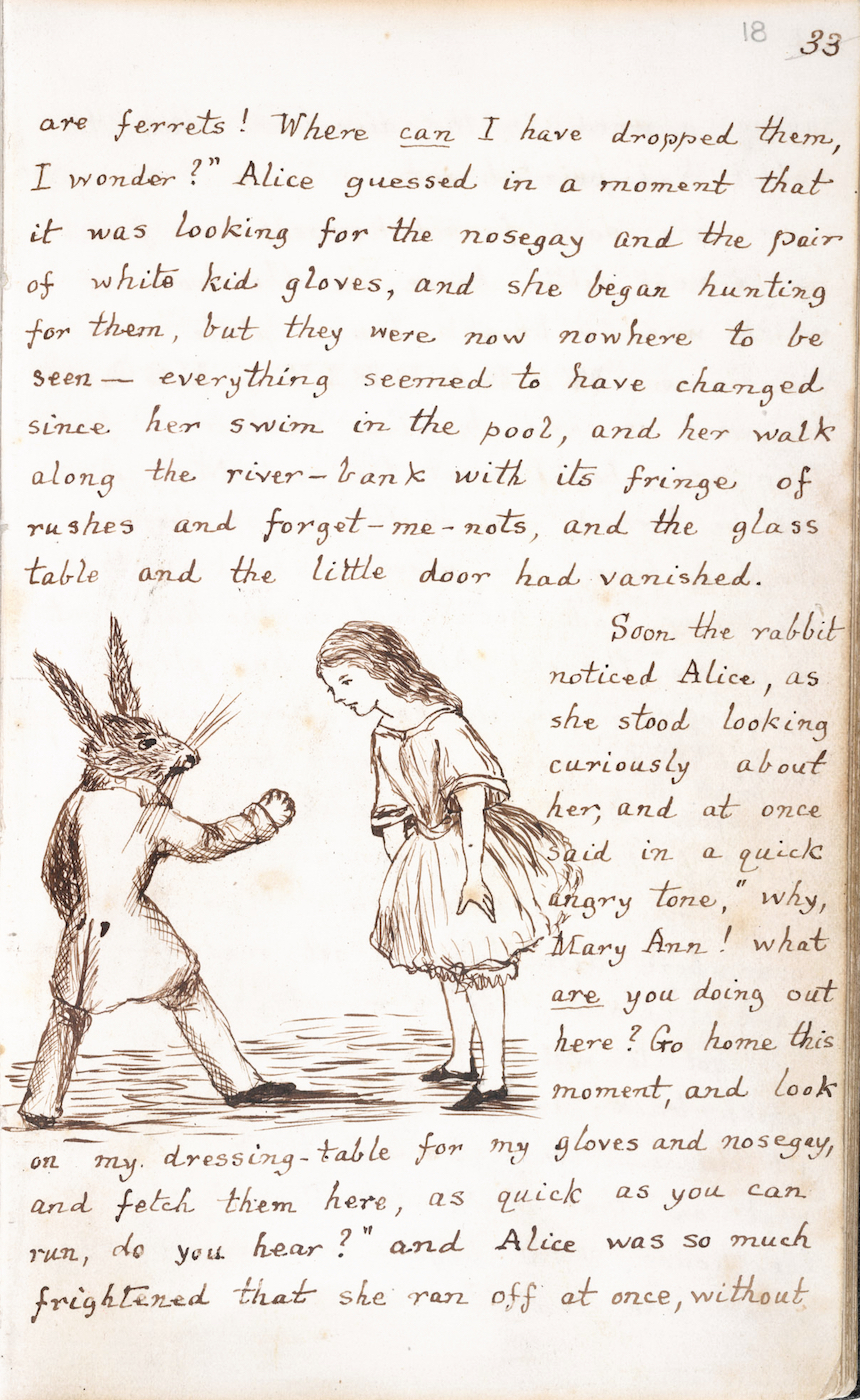 18 33
are ferrets! Where can I have dropped them,
I wonder?" Alice guessed in a moment that
it was looking for the nosegay and the pair
of white kid gloves, and she began hunting
for them, but they were now nowhere to be
seen — everything seemed to have changed
since her swim in the pool, and her walk
along the river-bank with its fringe of
rushes and forget-me-nots, and the glass
table and the little door had vanished.
Soon the rabbit
noticed Alice, as
she stood looking
curiously about
her, and at once
said in a quick
angry tone, "why,
Mary Ann! what
are you doing out
here? Go home this
moment, and look
on my dressing-table for my gloves and nosegay,
and fetch them here, as quick as you can
run, do you hear?" and Alice was so much
frightened that she ran off at once, without